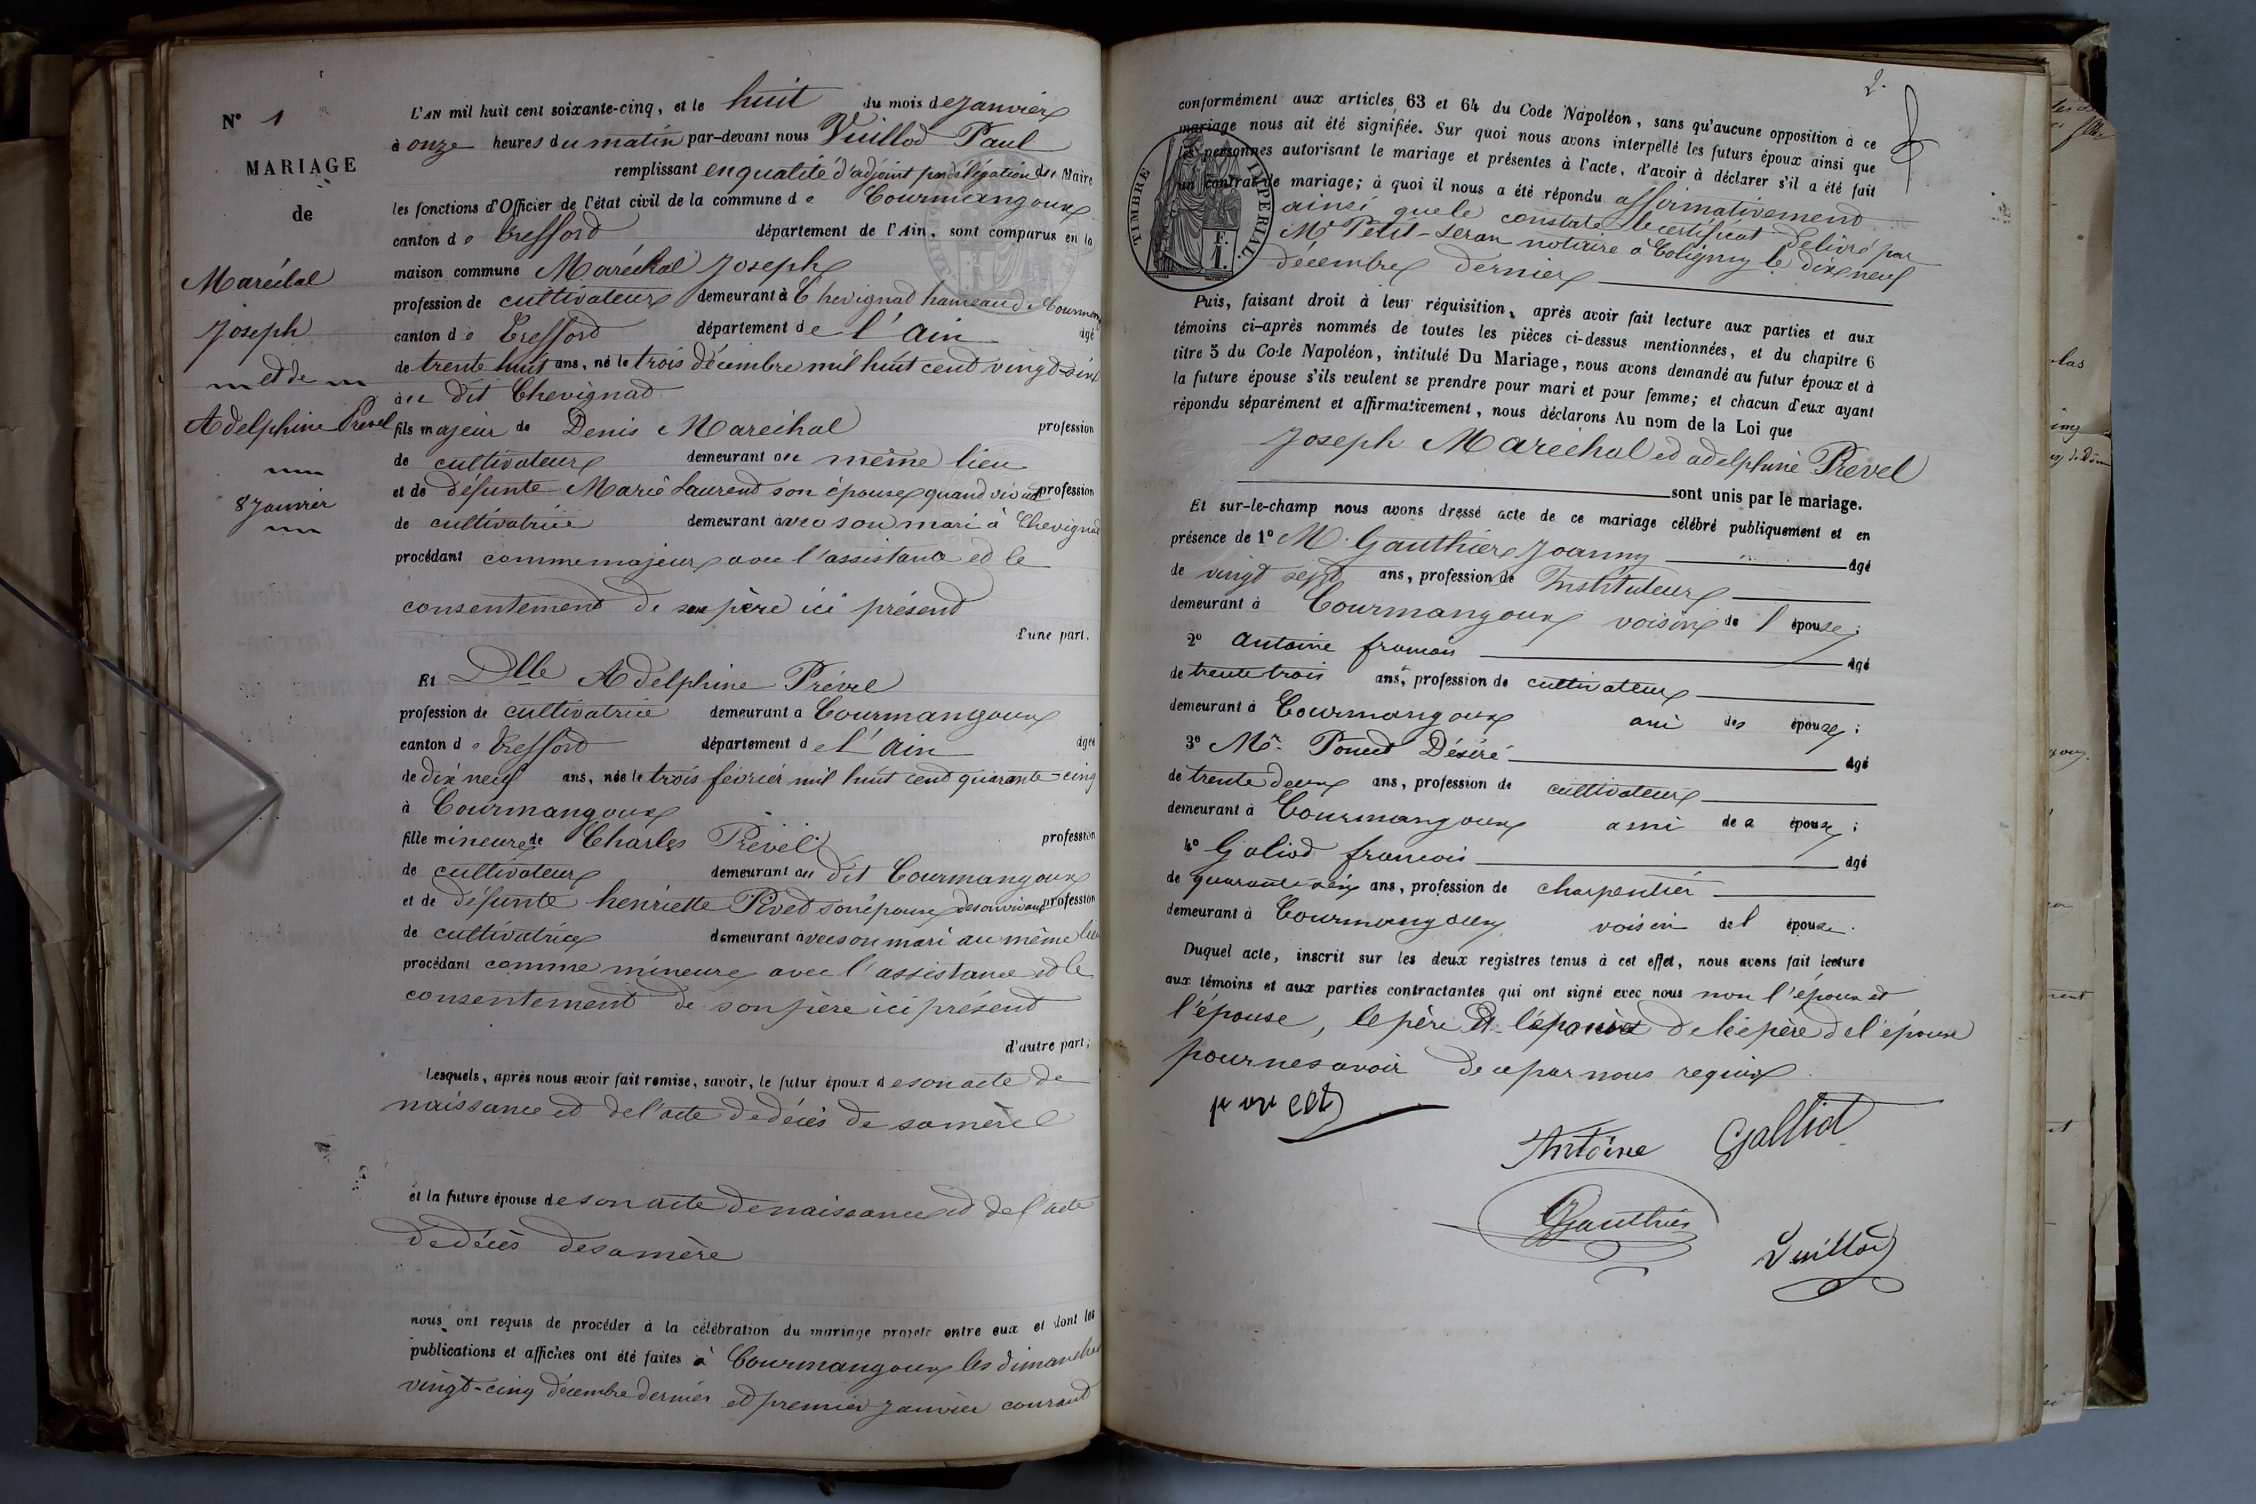 N° 1
MARIAGE
de
Maréchal
Joseph
et de
Adelphine Prevel
8 Janvier
L'AN mil huit cent soixante-cinq, et le huit du mois de Janvier
à onze heures du matin par-devant nous Vuillod Paul
remplissant en qualité d'adjoint par délégation du Maire
les fonctions d'Officier de l'état civil de la commune de Courmangoux
canton de Trefford département de l'Ain, sont comparus en la
maison commune Maréchal Joseph
profession de cultivateur demeurant à Chevignad hameau de Courmang
canton de Trefford département de l'Ain âgé
de trente huit ans, né le trois décembre mil huit cend vingd-six
au dit Chevignad
fils majeur de Denis Maréchal profession
de cultivateur demeurant au même lieu
et de défunte Marie Laurend son épouse quand vivait profession
de cultivatrice demeurant avec son mari à Chevignad
procédant comme majeur avec l'assistance ed le
consentemend de son père ici présend
d'une part.
Et Dlle Adelphine Prével
profession de cultivatrice demeurant à Courmangoux
canton de Trefford département de l'Ain âgée
de dix neuf ans, née le trois février mil huit cend quarante-cinq
à Courmangoux
fille mineure de Charles Prével profession
de cultivateur demeurant au dit Courmangoux
et de défunte henriette Pived son épouse de son vivant profession
de cultivatrice demeurant avec son mari au même lieu
procédant comme mineure avec l'assistance ed le
consentement de son père ici présend
d'autre part;
Lesquels, après nous avoir fait remise, savoir, le futur époux de son acte de
naissance ed de l'acte de décès de sa mère
et la future épouse de son acte de naissance ed de l'acte
de décès de sa mère
nous ont requis de procéder à la célébration du mariage projeté entre eux et dont les
publications et affiches ont été faites à Courmangoux les dimanches
vingt-cinq décembre dernier ed premier Janvier courand
2.
conformément aux articles 63 et 64 du Code Napoléon, sans qu'aucune opposition à ce
mariage nous ait été signifiée. Sur quoi nous avons interpellé les futurs époux ainsi que
les personnes autorisant le mariage et présentes à l'acte, d'avoir à déclarer s'il a été fait
un contrat de mariage; à quoi il nous a été répondu affirmativemend
ainsi que le constate le certificat délivré par
Me Petit-Jeran notaire à Coligny le dix neuf
décembre dernier
TIMBRE IMPERIAL
F. 1.
Puis, faisant droit à leur réquisition, après avoir fait lecture aux parties et aux
témoins ci-après nommés de toutes les pièces ci-dessus mentionnées, et du chapitre 6
titre 5 du Code Napoléon, intitulé Du Mariage, nous avons demandé au futur époux et à
la future épouse s'ils veulent se prendre pour mari et pour femme; et chacun d'eux ayant
répondu séparément et affirmativement, nous déclarons Au nom de la Loi que
Joseph Maréchal ed adelphine Prevel
sont unis par le mariage.
Et sur-le-champ nous avons dressé acte de ce mariage célébré publiquement et en
présence de 1° M. Gauthier Joanny âgé
de vingt sept ans, profession de Instituteur
demeurant à Courmangoux voisin de l'épouse;
2° Antoine françois âgé
de trente trois ans, profession de cultivateur
demeurant à Courmangoux ami des époux;
3° Mr. Poncet Désiré âgé
de trente deux ans, profession de cultivateur
demeurant à Courmangoux ami des époux;
4° Galiod francois âgé
de quarante six ans, profession de charpentier
demeurant à Courmangoux voisin de l'épouse.
Duquel acte, inscrit sur les deux registres tenus à cet effet, nous avons fait lecture
aux témoins et aux parties contractantes qui ont signé avec nous non l'époux et
l'épouse, le père de l'époux et le père de l'épouse
pour ne savoir de ce par nous requis.
poncet
Antoine Galliot
Gauthier
Vuillod